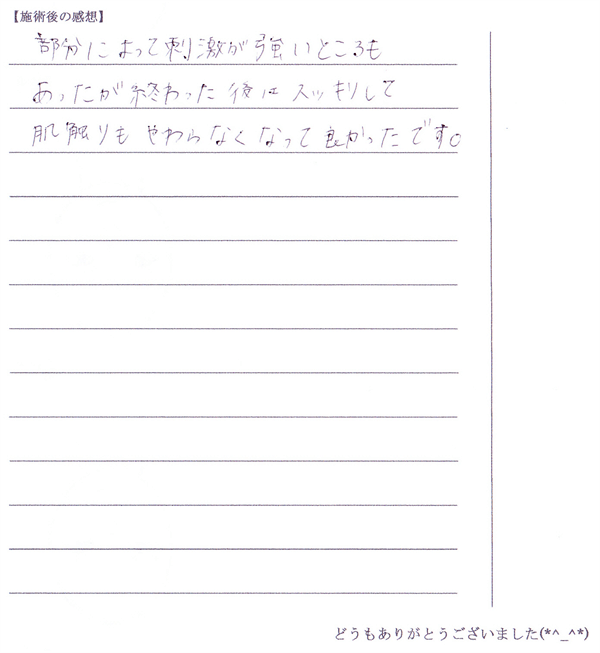 【施術後の感想】
部分によって刺激が強いところも
あったが終わった後はスッキリして
肌触りもやわらなくなって良かったです。
どうもありがとうございました(*^_^*)